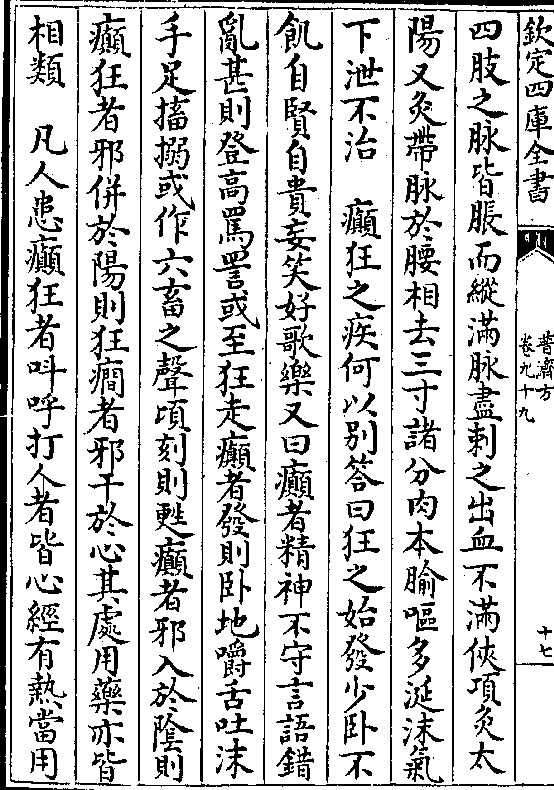 欽定四庫全書
普濟方
卷九十九
十七
四肢之脉皆脹而縱滿脉盡刺之出血不滿俠項灸太
陽又灸帶脉於腰相去三寸諸分肉本腧嘔多涎沫氣
下泄不治　癲狂之疾何以别答曰狂之始發少卧不
飢自賢自貴妄笑好歌樂又曰癲者精神不守言語錯
亂甚則登高罵詈或至狂走癲者發則卧地嚼舌吐沫
手足搐搦或作六畜之聲頃刻則甦癲者邪入於陰則
癲狂者邪併於陽則狂癇者邪干於心其處用藥亦皆
相類　凡人患癲狂者呌呼打人者皆心經有熱當用